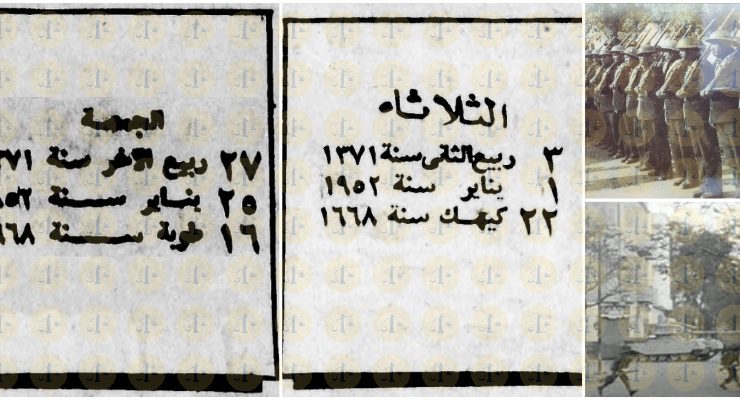 الثلاثاء
٣ ربيع الثانى سنة ١٣٧١
١ يناير سنة ١٩٥٢
٢٢ كيهك سنة ١٦٦٨
الجمعة
٢٧ ربيع الآخر سنة
٢٥ يناير سنة
١٦ طوبة سنة